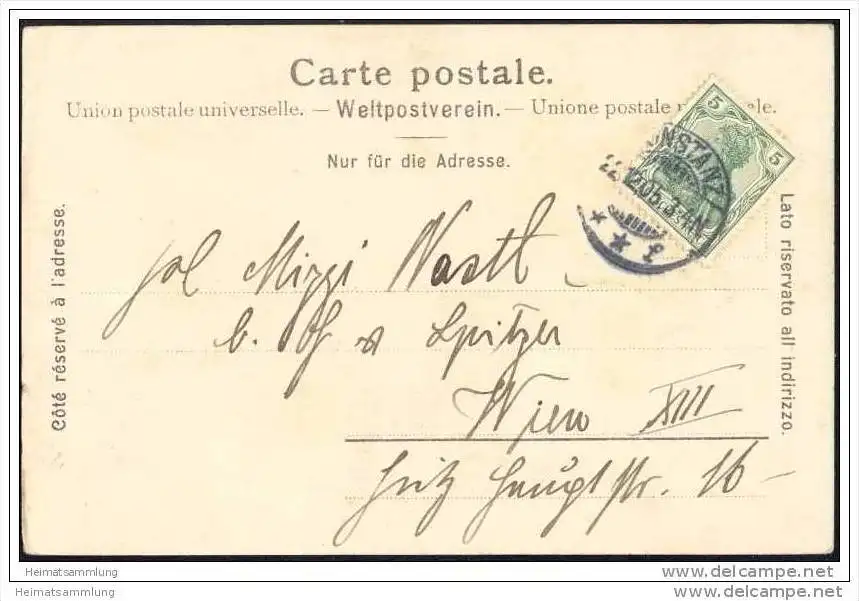 Carte postale.
Union postale universelle. — Weltpostverein. — Unione postale
Nur für die Adresse.
5
5
22.12.05.3-4N
* * f
Côté réservé à l'adresse.
Lato riservato all indirizzo.
Mizzi Nastl
b. Spitzer
Wien XIII
Hauptstr. 16-
Heimatsammlung
Heimatsammlung
www.delcampe.net
www.delcampe.net